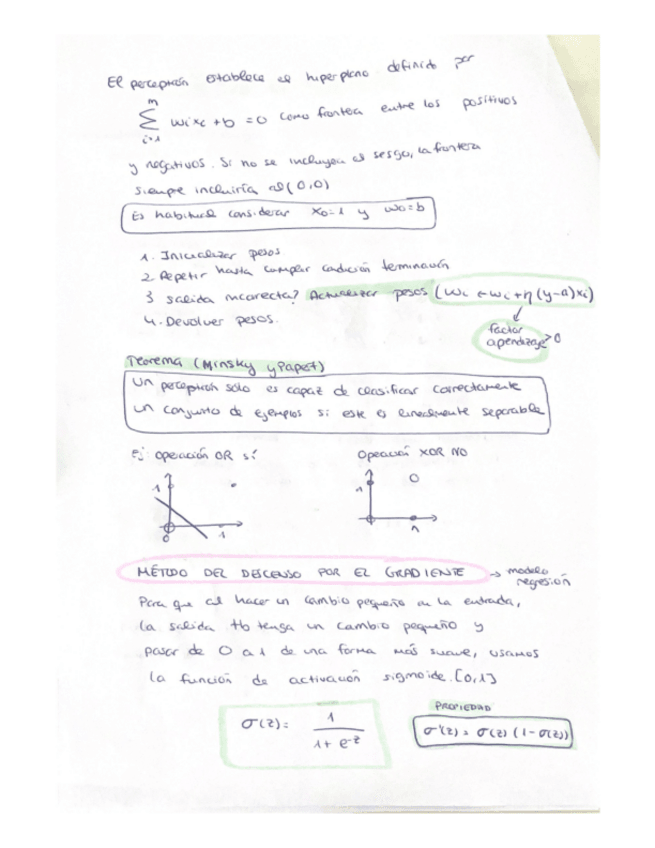 El perceptrón establece el hiperplano definido por
m
∑ wixi + b = 0 como frontera entre los positivos
i=1
y negativos. Si no se incluyera el sesgo, la frontera
siempre incluiría al (0,0)
Es habitual considerar x0=1 y w0=b
1. Inicializar pesos
2. Repetir hasta cumplir condición terminación
3 salida incorrecta? Actualizar pesos (wi ← wi + η (y-a)xi)
4. Devolver pesos.
factor
aprendizaje >0
Teorema (Minsky y Papert)
Un perceptrón sólo es capaz de clasificar correctamente
un conjunto de ejemplos si este es linealmente separable
Ej: operación OR sí
Operación XOR NO
1
0
1
1
1
MÉTODO DEL DESCENSO POR EL GRADIENTE → modelo
regresión
Para que al hacer un cambio pequeño en la entrada,
la salida tb tenga un cambio pequeño y
pasar de 0 a 1 de una forma más suave, usamos
la función de activación sigmoide. [0,1]
σ(z) = 1 / 1 + e^-z
PROPIEDAD
σ'(z) = σ(z) (1 - σ(z))